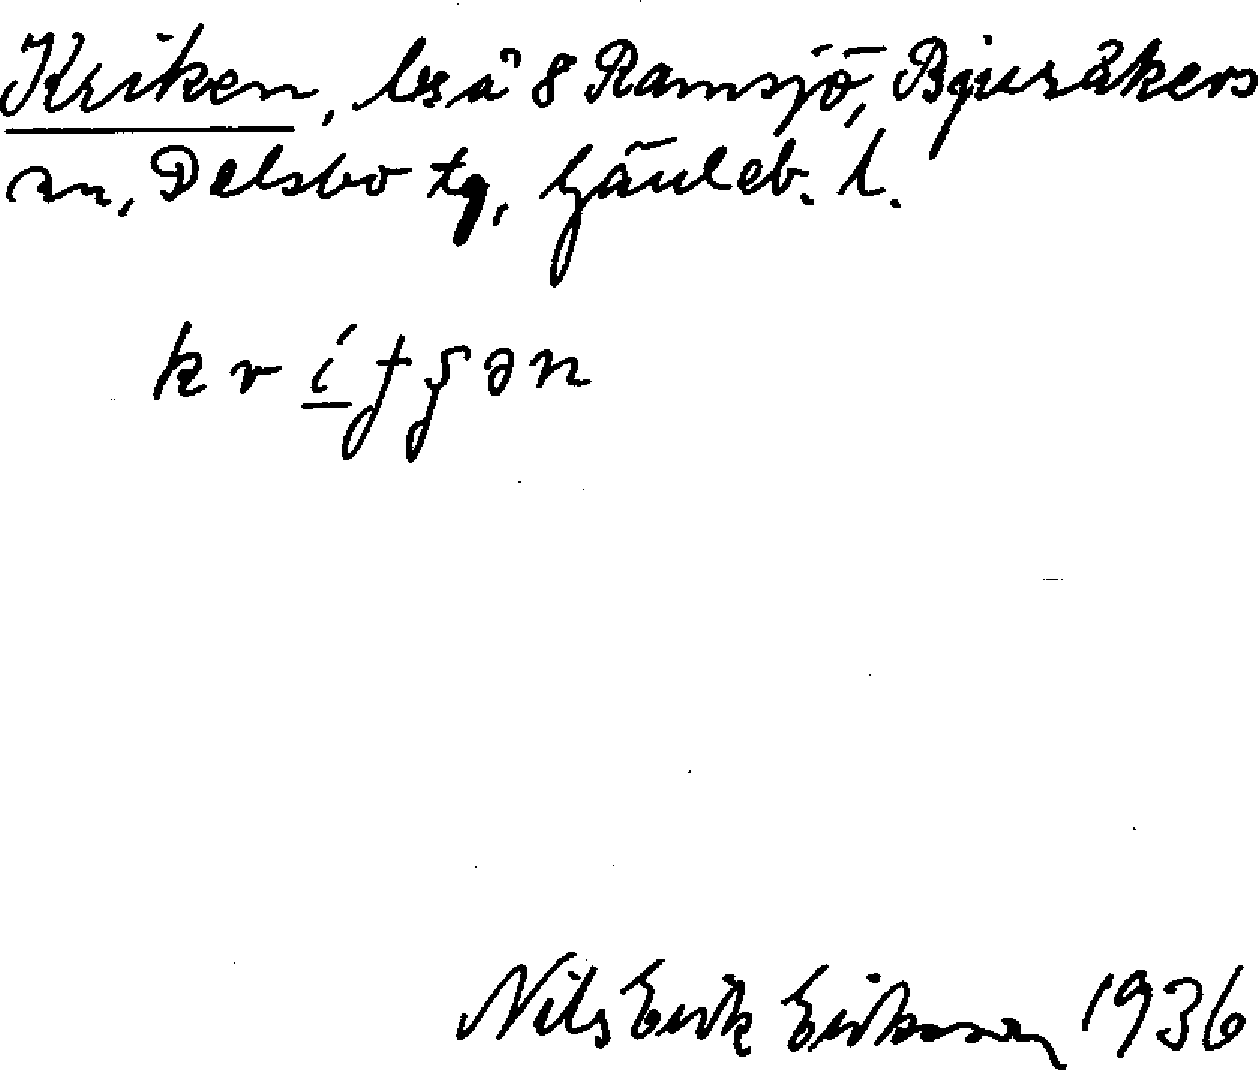 Kriken, lgh å 8 Ramsjö, Bjuråkers
sn, Delsbo tg, Gävleb. l.
kvítɕən
Nils Erik Eriksson 1936